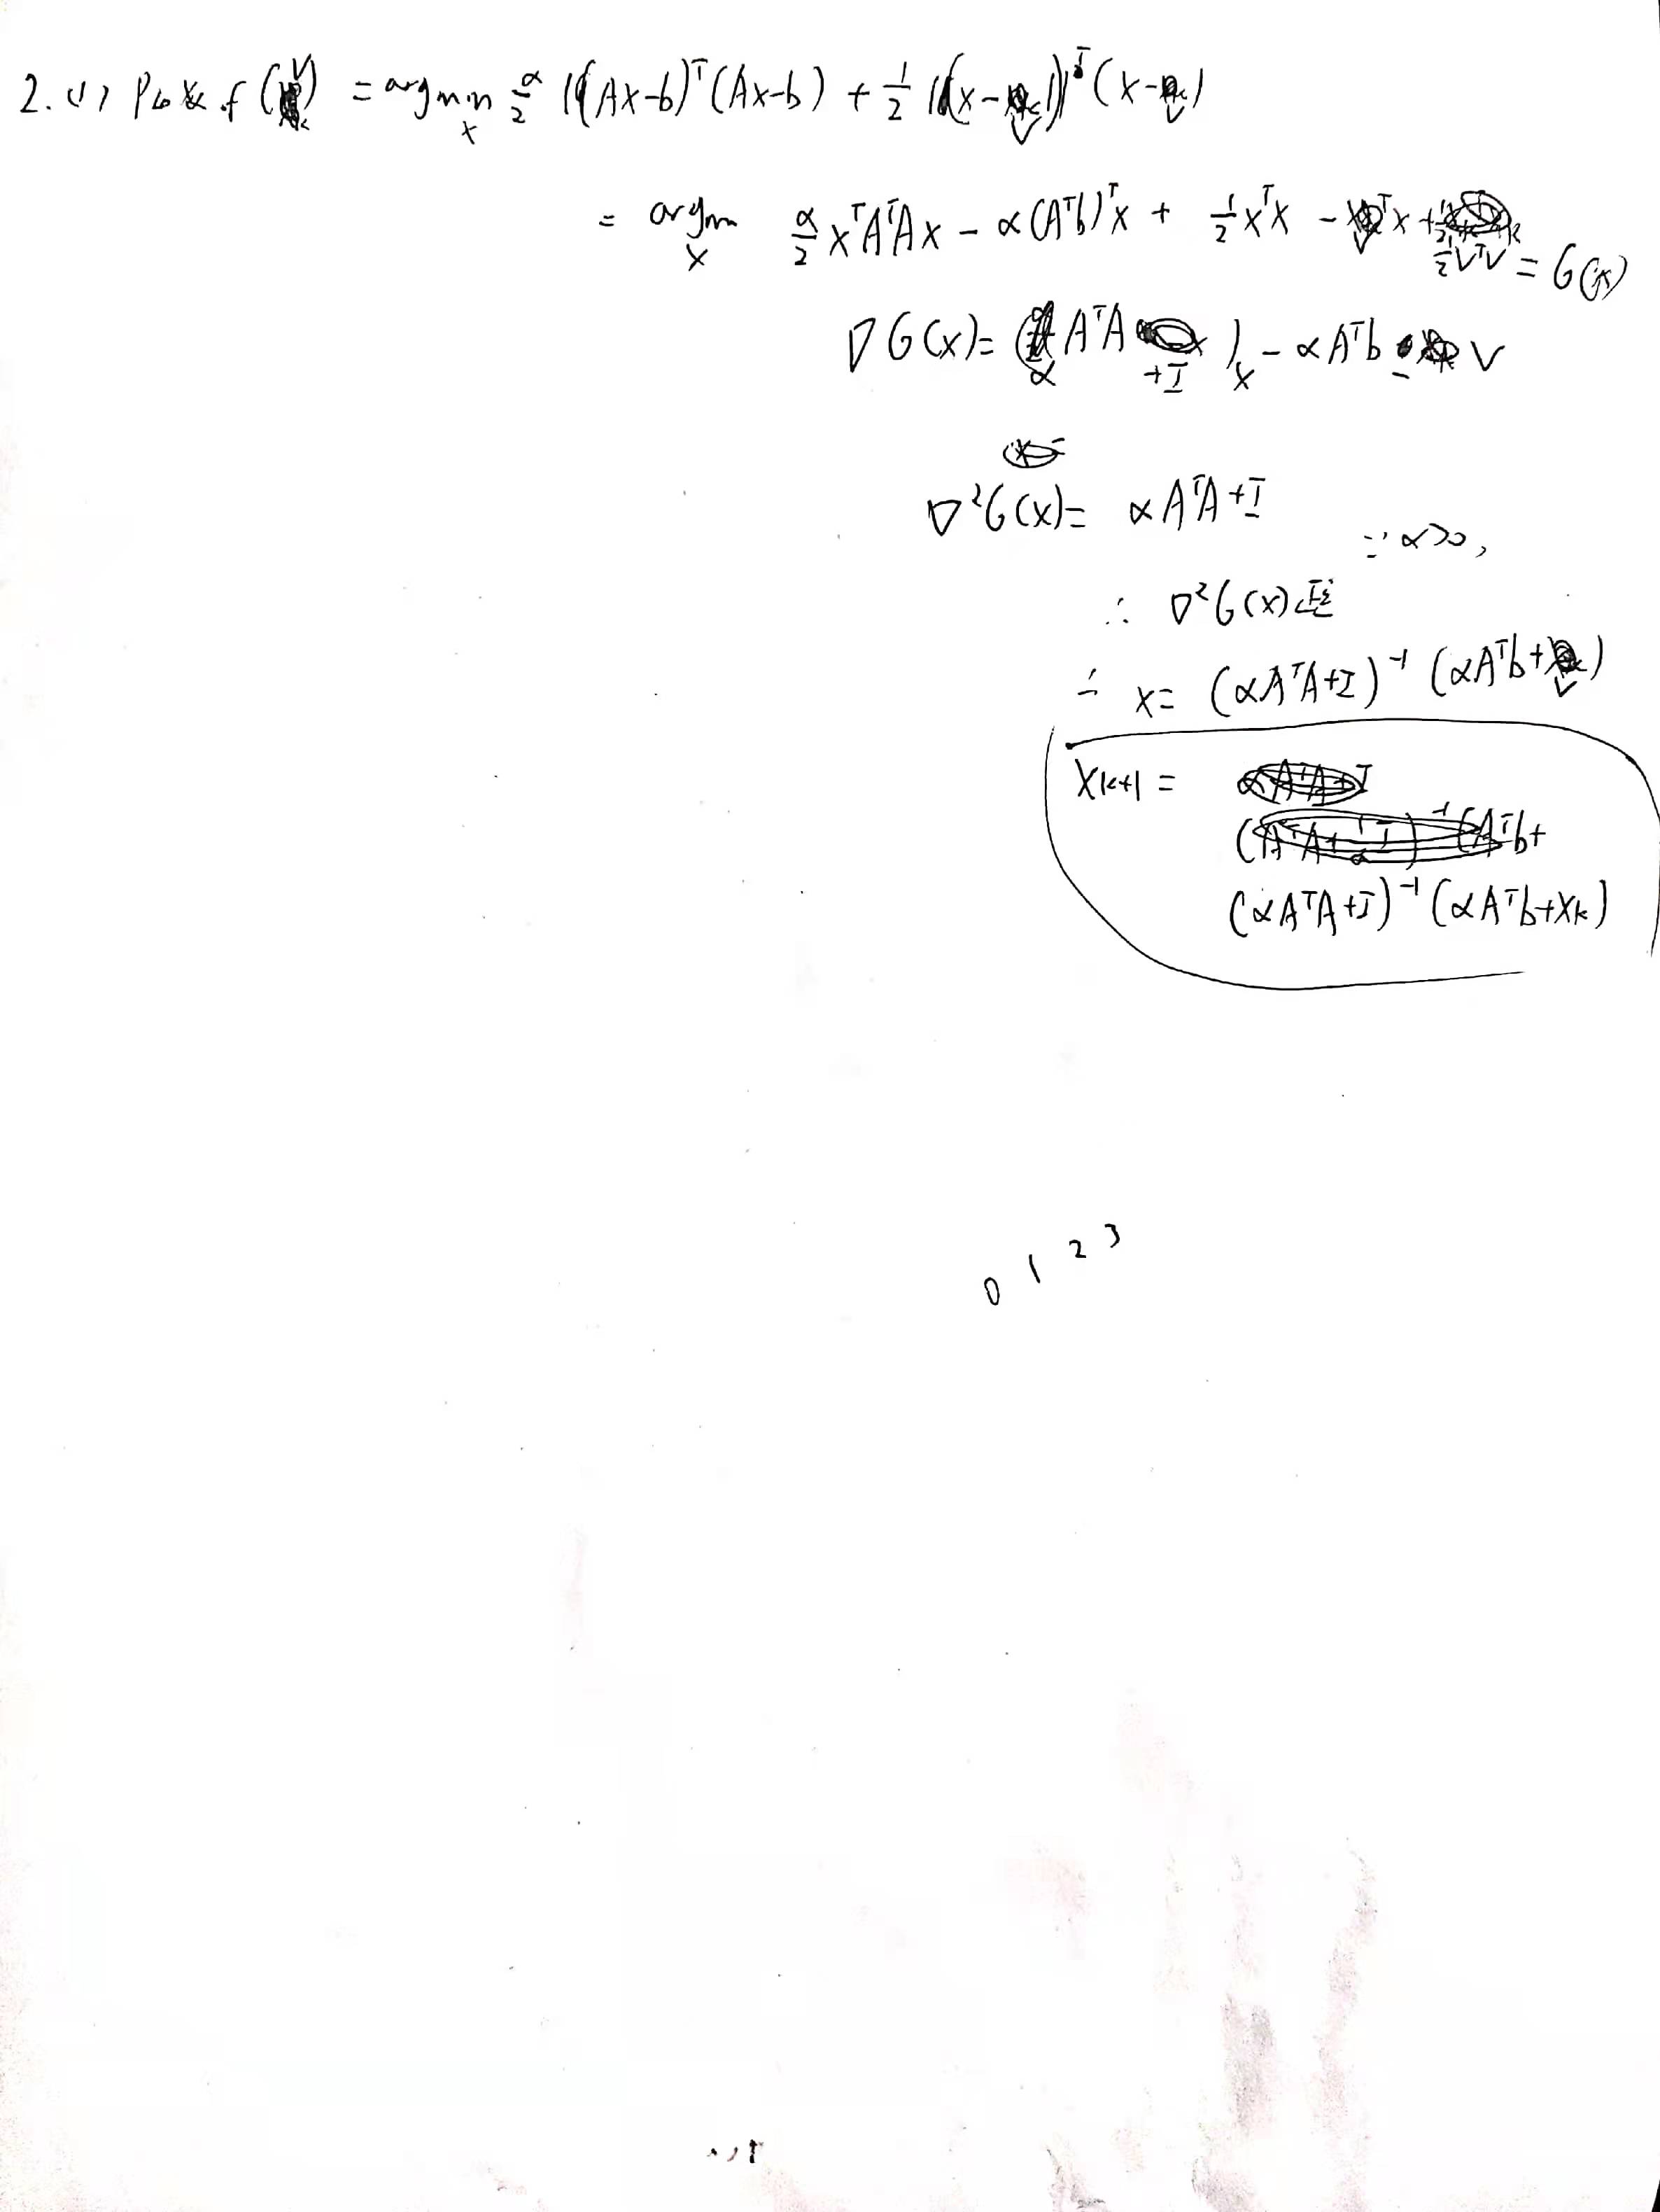 2. (1) Prox α f (V) = argmin x α/2 (Ax-b)ᵀ(Ax-b) + 1/2 (x-V)ᵀ(x-V)
= argm x α/2 xᵀAᵀAx - α(Aᵀb)ᵀx + 1/2 xᵀx - Vᵀx + 1/2 VᵀV = G(x)
∇G(x) = (αAᵀA + I)x - αAᵀb - V
∇²G(x) = αAᵀA + I
∵ α>0,
∴ ∇²G(x) 正定
∴ x = (αAᵀA+I)⁻¹ (αAᵀb+V)
xₖ₊₁ =
(αAᵀA+I)⁻¹ (αAᵀb+xₖ)
0 1 2 3